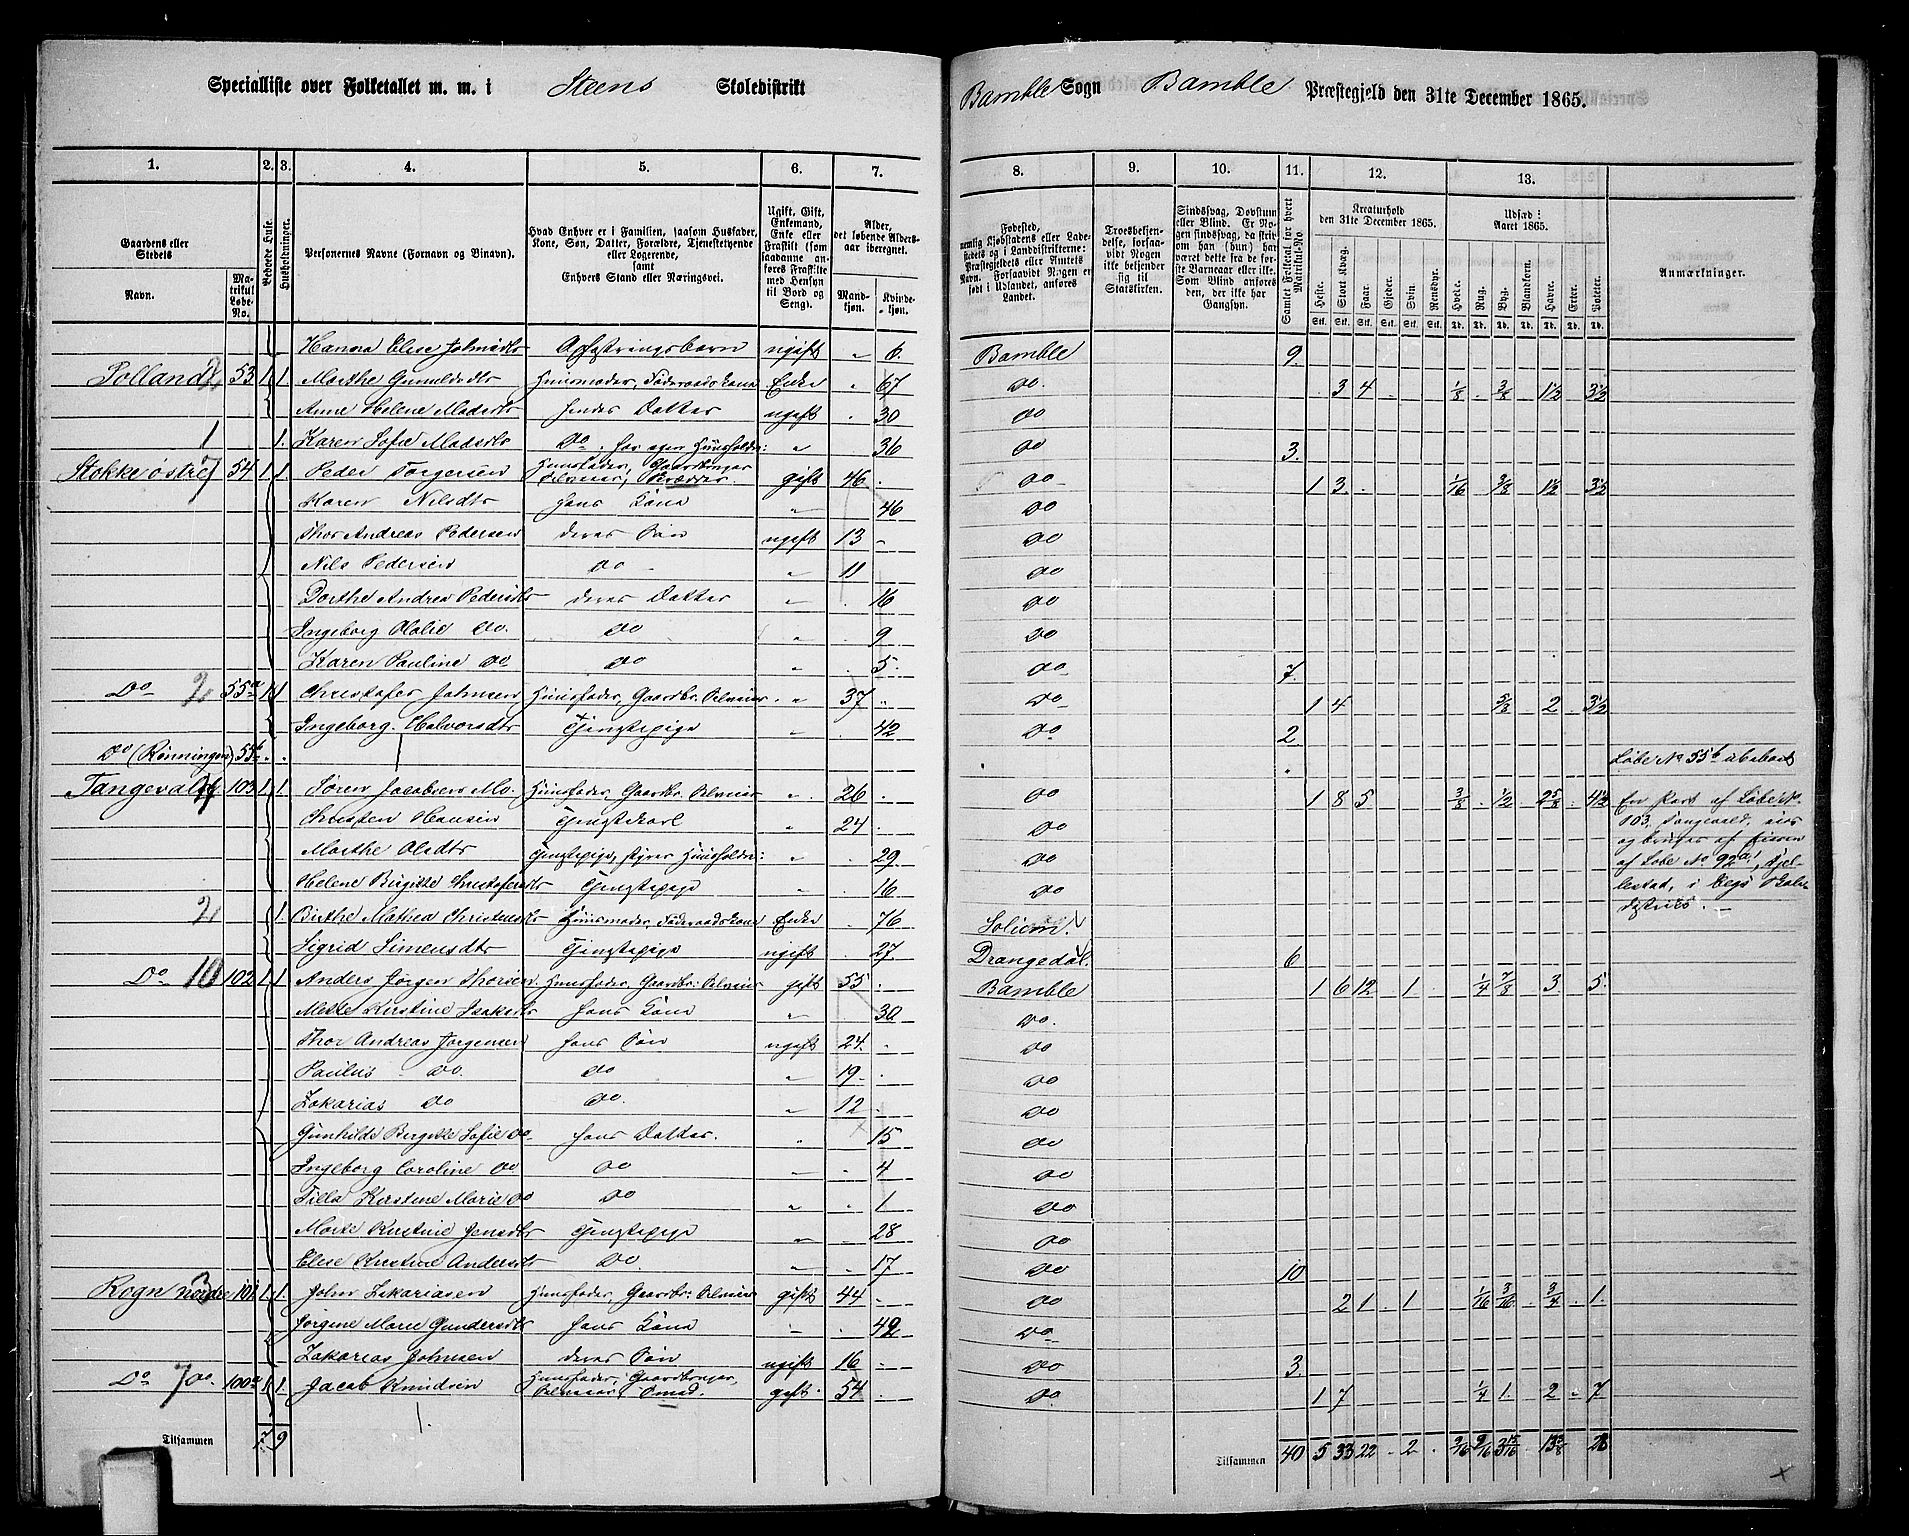 Specialliste over Folketallet m. m. i Steens Skoledistrikt
Bamble Sogn Bamble Præstegjeld den 31te December 1865.
1. 2. 3. 4. 5. 6. 7. 8. 9. 10. 11. 12. 13.
Gaardens eller Stedets
Navn.
Matrikul Løbe-No.
Beboede Huse.
Husholdninger.
Personernes Navne (Fornavn og Binavn).
Hvad Enhver er i Familien, saasom Husfader, Kone, Søn, Datter, Forældre, Tjenestetyende eller Logerende, samt Enhvers Stand eller Næringsvei.
Ugift, Gift, Enkemand, Enke eller Fraskilt (som saadanne anføres Fraskilte med Hensyn til Bord og Seng).
Alder, det løbende Alders-aar iberegnet.
Mandkjøn. Kvindekjøn.
Fødested,
Troesbekjendelse, forsaavidt Nogen ikke bekjender sig til Statskirken.
Samlet Folketal for hvert Matrikul-No.
Kreaturhold den 31te December 1865.
Heste. Stort Kvæg. Faar. Gjeder. Svin. Rensdyr.
Udsæd i Aaret 1865.
Hvede. Rug. Byg. Blandkorn. Havre. Erter. Poteter.
Anmærkninger.
Hanna Elise Johnsdtr Opfostringsbarn ugift " 6. Bamble 9.
53 1 1. Marthe Gunuldsdtr Huusmoder, Føderaadskone Enke " 67 Do. 3 4 1/8 3/8 1 1/2 3 1/2
Anne Helene Madsdtr hendes Datter ugift . 30 Do
1. Karen Sofie Madsdtr Do " 36 Do 3.
Stokke østre 7 54 1 1. Peder Torgersen Huusfader, Gaardbruger Selveier, Skrædder. gift 46 . Do 1 3 1/16 3/8 1 1/2 3 1/2
Karen Nilsdtr hans Kone " 46 Do
Thor Andreas Pedersen deres Søn ugift 13 Do
Nils Pedersen Do " 11 Do
Dorthe Andrea Pedersdtr deres Datter " . 16 Do
Ingeborg Olalie Do. Do " . 9 Do
Karen Pauline Do Do " . 5 Do 7.
Do 2 55a 1 1 Christofer Johnsen Huusfader, Gaardbr. Selveier " 37 " Do 1 4 5/8 2 3 1/2
Ingeborg Halvorsdtr Tjenestepige " . 42 Do 2
Do (Rønningen) 55b . . Løbe No 55b ubeboet
Tangevald 103 1 1. Søren Jacobsen Mo. Huusfader, Gaardbr. Selveier " 26 . Do 1 8 5 3/8 1/2 2 5/8 4 1/2 En Part af Løbe No
Christen Hansen Tjenestekarl " 24 . Do 103, Tangevald, eies
Marthe Olsdtr Tjenestepige, styrer Huusholdn: . 29 Do og bruges af Eieren
Helene Birgitte Christofersdtr Tjenestepige " . 16 Do af Løbe No 92a,
2 1. Birthe Mathea Christensdtr Huusmoder, Føderaadskone Enke . 76 Solum.
Sigrid Simensdtr Tjenestepige ugift . 27 Drangedal. 6
Do 10 102 1 1 Anders Jørgen Thorsen Huusfader, Gaardbr: Selveier gift 55 . Bamble 1 6 12 1 1/4 7/8 3 5
Mette Kirstine Isaksdtr hans Kone " . 30 Do.
Thor Andreas Jørgensen hans Søn ugift 24. Do
Paulus Do. Do " 19 . Do
Zakarias Do Do. " 12 . Do
Gunhilde Birgitte Sofie Do. hans Datter. " . 15 Do
Ingeborg Caroline Do Do " . 4 Do
Kirstine Marie Do Do " . 1 Do
Kirstine Jensdtr Tjenestepige " . 28 Do
Elise Kirstine Andersdtr Do. " . 17 Do 10
Rogn nordre 3 101 1. 1. John Zakariasen Huusfader, Gaardbr: Selveier gift 44 . Do 2 1 1 1/16 3/16 3/4 1.
Jørgine Marie Gundersdtr hans Kone " . 42 Do
Zakarias Johnsen deres Søn ugift 16 Do 3.
Do 7 Do. 100a 1 1. Jacob Knudsen Huusfader, Gaardbruger, Selveier, Smed. gift 54 . Do 1 7 1/4 1 2 7
Tilsammen 7 9
Tilsammen 40 5 33 22 2 9/16 9/16 3 15/16 13 3/8 28